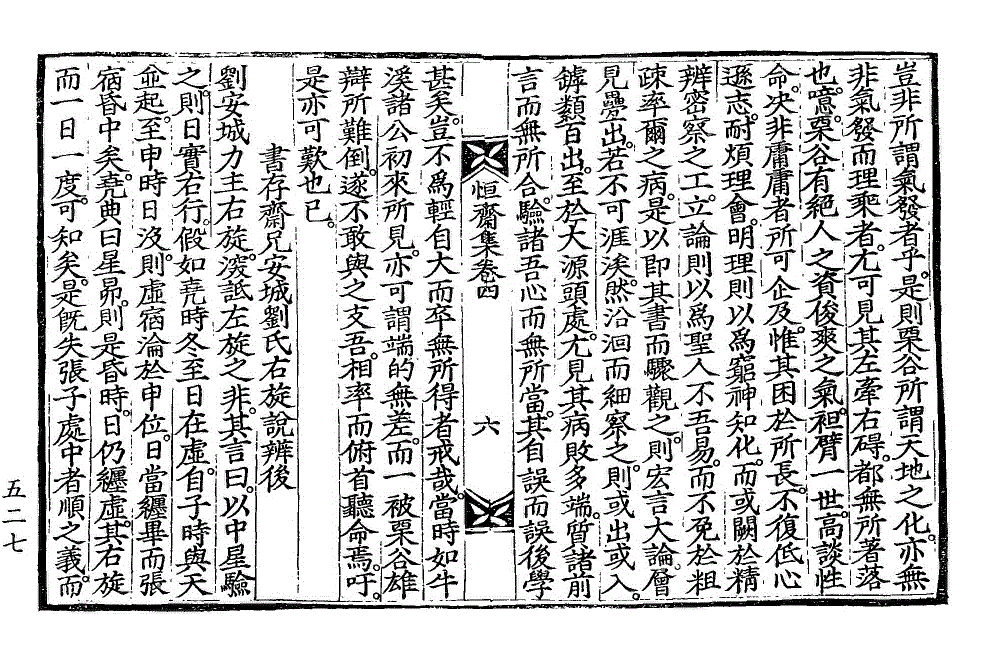 豈非所謂氣發者乎。是則栗谷所謂天地之化。亦無
非氣發而理乘者。尤可見其左牽右碍。都無所著落
也。噫。栗谷有絕人之資俊爽之氣。袒臂一世。高談性
命。决非庸庸者所可企及。惟其困於所長。不復低心
遜志。耐煩理會。明理則以爲窮神知化。而或闕於精
辨密察之工。立論則以爲聖人不吾易。而不免於粗
疎率爾之病。是以即其書而驟觀之。則宏言大論。層
見疊出。若不可涯涘。然沿洄而細察之。則或出或入。
罅纇百出。至於大源頭處。尤見其病敗多端。質諸前
言而無所合。驗諸吾心而無所當。其自誤而誤後學
恒齋集卷四
六
甚矣。豈不爲輕自大而卒無所得者戒哉。當時如牛
溪諸公初來所見。亦可謂端的無差。而一被栗谷雄
辯所難倒。遂不敢與之支吾。相率而俯首聽命焉。吁。
是亦可歎也已。
書存齋兄安城劉氏右旋說辨後
劉安城力主右旋。深詆左旋之非。其言曰。以中星驗
之。則日實右行。假如堯時冬至日在虛。自子時與天
並起。至申時日沒。則虛宿淪於申位。日當纏畢而張
宿昏中矣。堯典曰星昴。則是昏時。日仍纏虛。其右旋
而一日一度。可知矣。是旣失張子處中者順之義。而
五二七